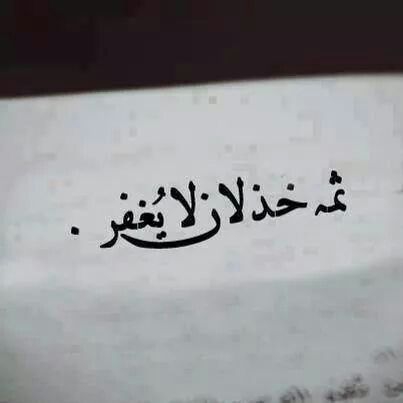 ثمه خذلان لا يُغفر .